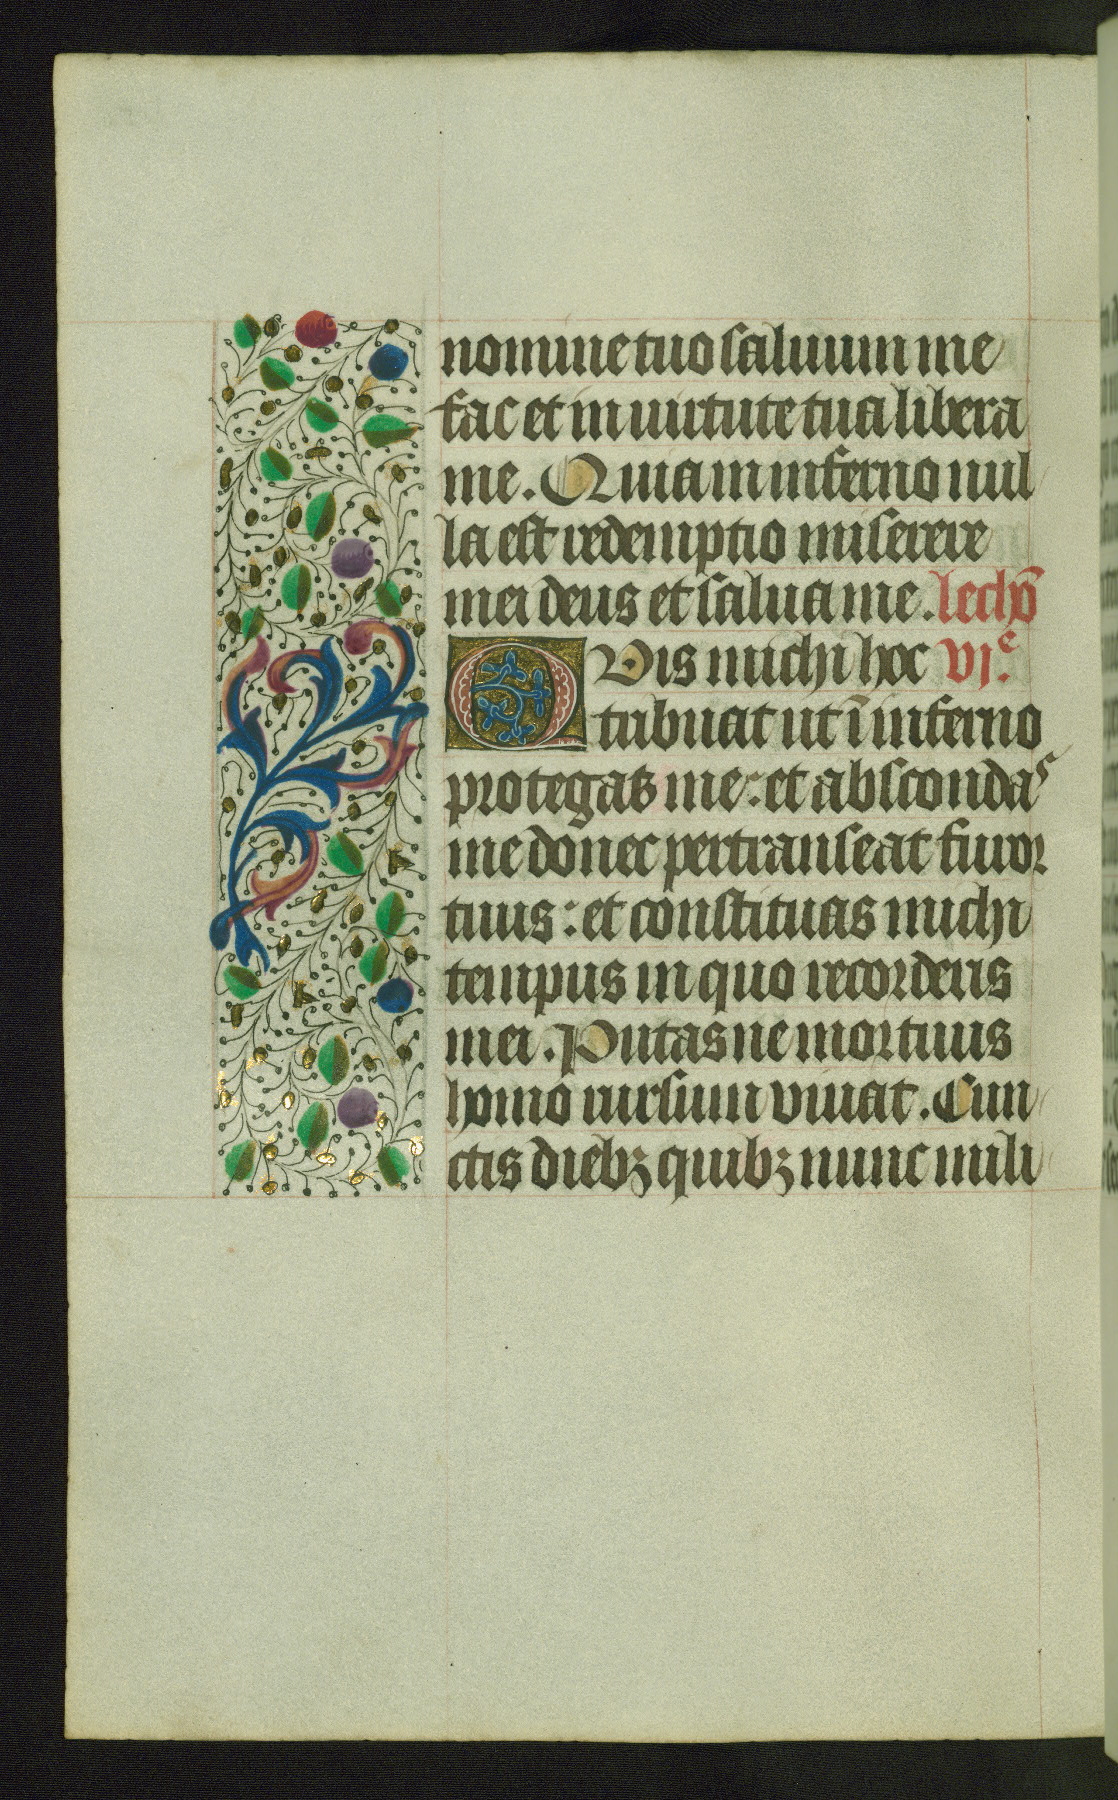 nomine tuo saluum me
fac et in uirtute tua libera
me. Quia in inferno nul
la est redemptio miserere
mei deus et salua me. lectiō
QUis michi hoc VI.ͨ
tribuat ut ī inferno
protegas me: et abscondas
me donec pertranseat furor
tuus: et constituas michi
tempus in quo recorderis
mei. Putasne mortuus
homo rursum viuat. Cun
ctis diebꝫ quibꝫ nunc mili